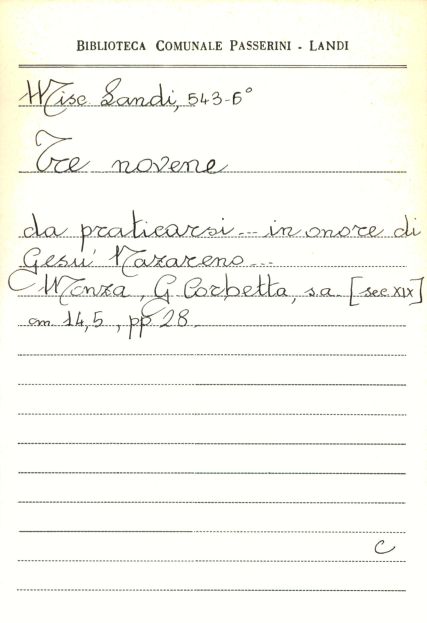 BIBLIOTECA COMUNALE PASSERINI - LANDI
Misc Landi, 543-6°
Tre novene
da praticarsi... in onore di
Gesù Nazareno...
Monza, G Corbetta, s.a. [sec. XIX]
cm. 14,5, pp 28.
C